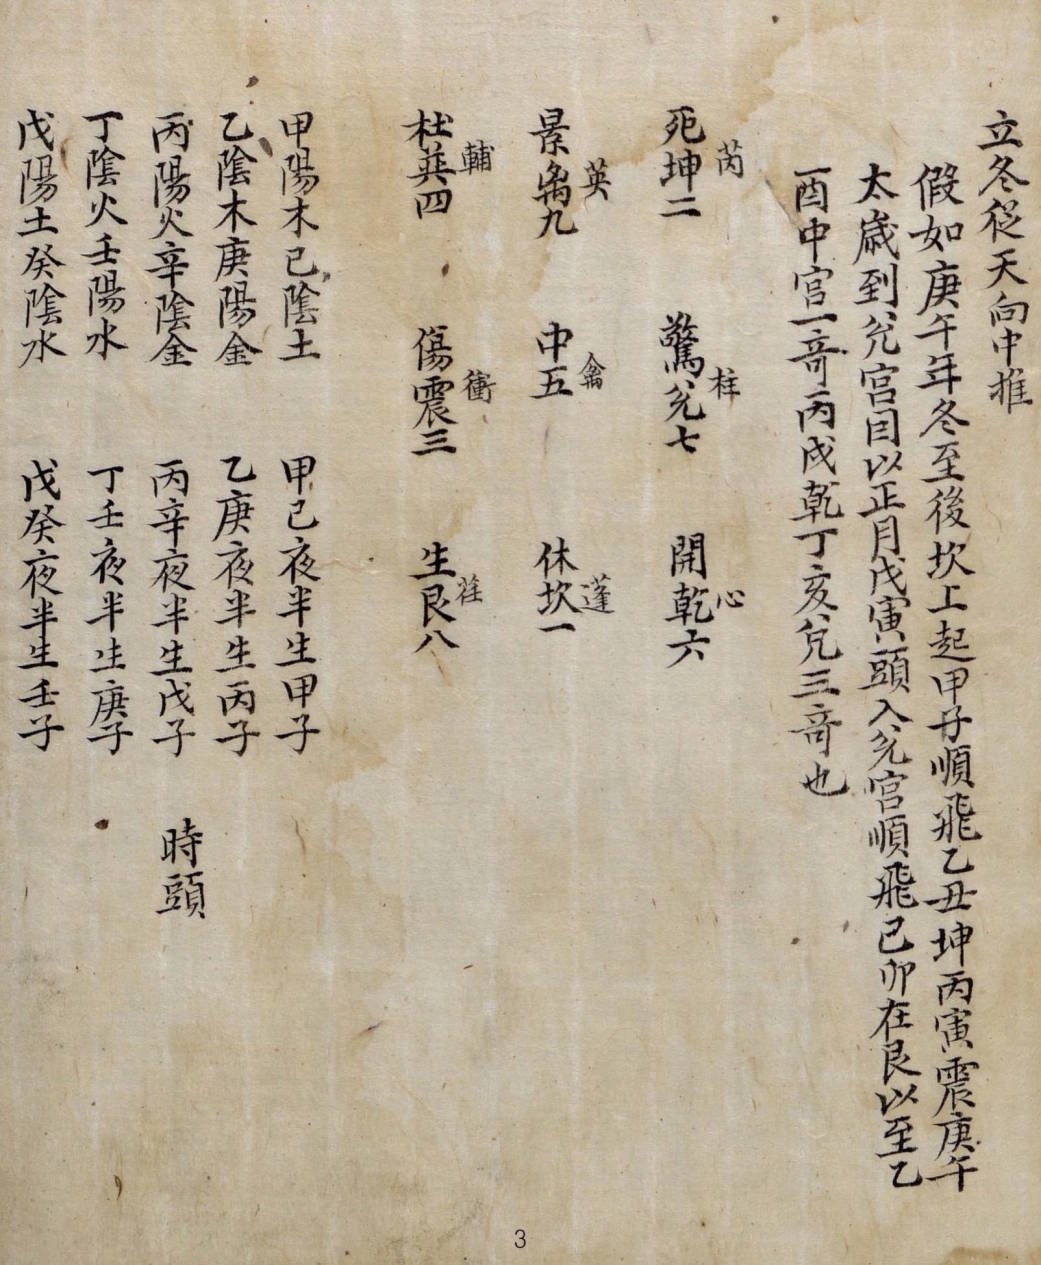 立冬從天向中推
假如庚午年冬至後坎上起甲子順飛乙丑坤丙寅震庚午
太歲到兌宮因以正月戊寅頭入兌宮順飛己卯在艮以至乙
酉中宮一竒丙戌乾丁亥兌三竒也
芮 柱 心
死坤二 驚兌七 開乾六
英 禽 蓬
景离九 中五 休坎一
輔 衝 任
杜巽四 傷震三 生艮八
甲陽木己陰土 甲己夜半生甲子
乙陰木庚陽金 乙庚夜半生丙子
丙陽火辛陰金 丙辛夜半生戊子 時頭
丁陰火壬陽水 丁壬夜半生庚子
戊陽土癸陰水 戊癸夜半生壬子
3